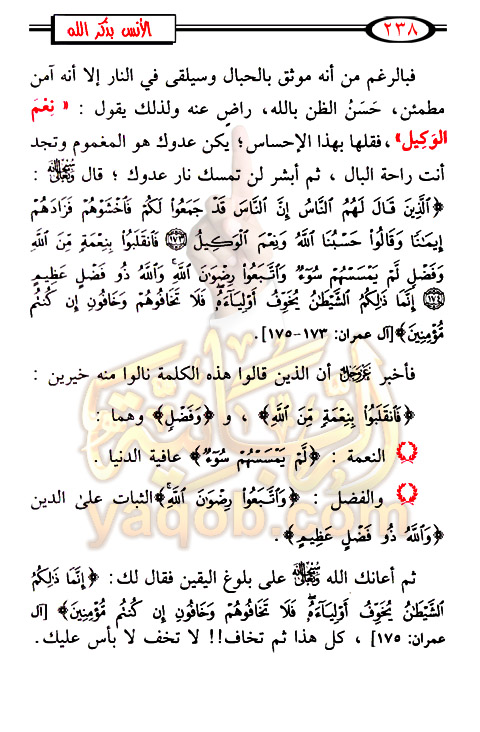 ٢٣٨
الأنس بذكر الله
فبالرغم من أنه موثق بالحبال وسيلقى في النار إلا أنه آمن
مطمئن، حَسَنُ الظن بالله، راضٍ عنه ولذلك يقول : « نِعْمَ
الوَكِيل» ،فقلها بهذا الإحساس؛ يكن عدوك هو المغموم وتجد
أنت راحة البال ، ثم أبشر لن تمسك نار عدوك ؛ قال ﷾ :
﴿ٱلَّذِينَ قَالَ لَهُمُ ٱلنَّاسُ إِنَّ ٱلنَّاسَ قَدْ جَمَعُوا۟ لَكُمْ فَٱخْشَوْهُمْ فَزَادَهُمْ
إِيمَٰنًا وَقَالُوا۟ حَسْبُنَا ٱللَّهُ وَنِعْمَ ٱلْوَكِيلُ ﴿١٧٣﴾ فَٱنقَلَبُوا۟ بِنِعْمَةٍ مِّنَ ٱللَّهِ
وَفَضْلٍ لَّمْ يَمْسَسْهُمْ سُوٓءٌ وَٱتَّبَعُوا۟ رِضْوَٰنَ ٱللَّهِ ۗ وَٱللَّهُ ذُو فَضْلٍ عَظِيمٍ
﴿١٧٤﴾ إِنَّمَا ذَٰلِكُمُ ٱلشَّيْطَٰنُ يُخَوِّفُ أَوْلِيَآءَهُۥ فَلَا تَخَافُوهُمْ وَخَافُونِ إِن كُنتُم
مُّؤْمِنِينَ﴾[آل عمران: ١٧٣-١٧٥].
فأخبر ﷿ أن الذين قالوا هذه الكلمة نالوا منه خيرين :
﴿فَٱنقَلَبُوا۟ بِنِعْمَةٍ مِّنَ ٱللَّهِ﴾ ، و ﴿وَفَضْلٍ﴾ وهما :
النعمة : ﴿لَّمْ يَمْسَسْهُمْ سُوٓءٌ﴾ عافية الدنيا .
والفضل : ﴿وَٱتَّبَعُوا۟ رِضْوَٰنَ ٱللَّهِ ۗ﴾الثبات على الدين
﴿وَٱللَّهُ ذُو فَضْلٍ عَظِيمٍ﴾.
ثم أعانك الله ﷾ على بلوغ اليقين فقال لك: ﴿إِنَّمَا ذَٰلِكُمُ
ٱلشَّيْطَٰنُ يُخَوِّفُ أَوْلِيَآءَهُۥ فَلَا تَخَافُوهُمْ وَخَافُونِ إِن كُنتُم مُّؤْمِنِينَ﴾ [آل
عمران: ١٧٥] ، كل هذا ثم تخاف!! لا تخف لا بأس عليك.
yaqob.com